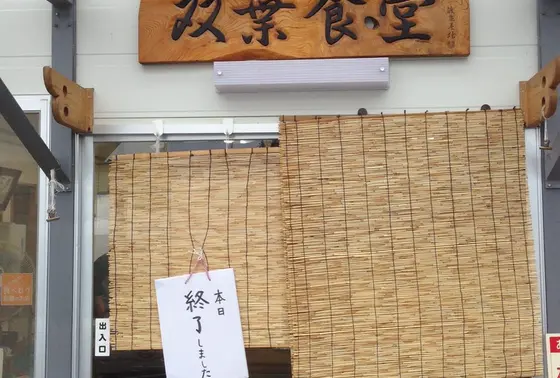 双葉食堂
本日
終了
しました
出入口